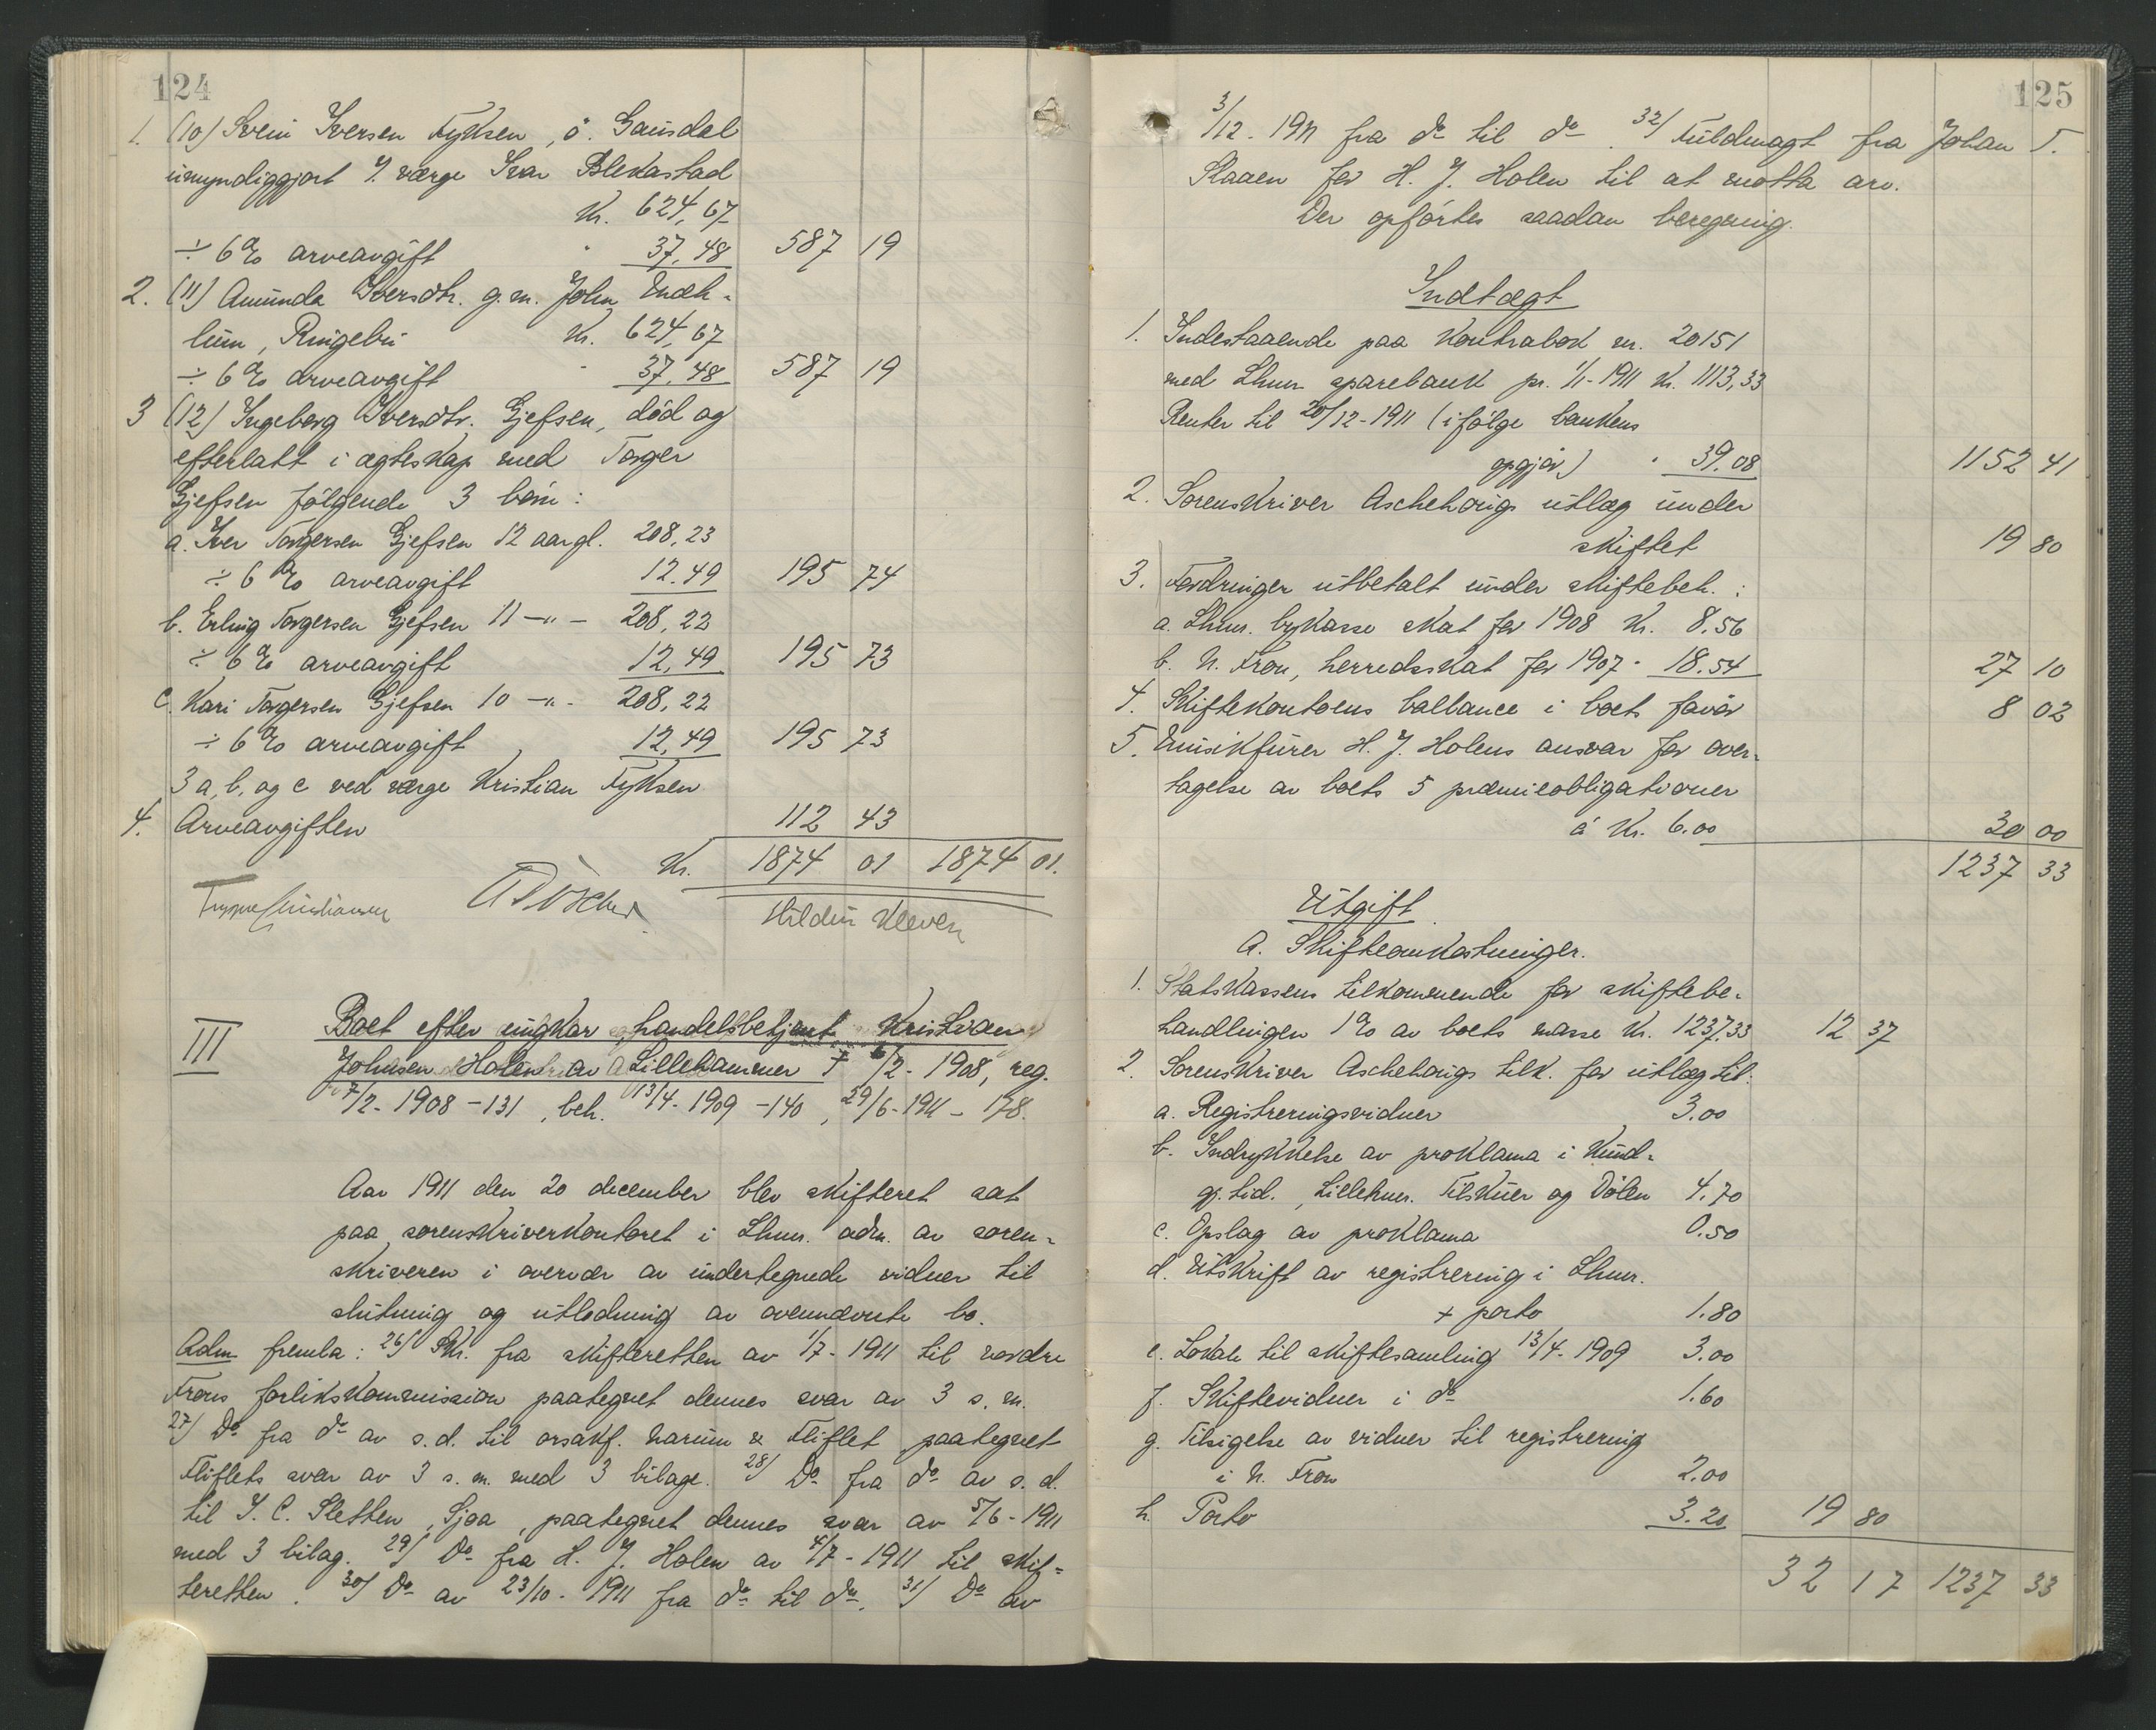 124
1. (10) Svein Iversen Fyksen, ö. Gausdal
umyndiggjort v/ værge Ivar Blekastad
Kr. 624,67
÷ 6% arveavgift " 37,48 587 19
2. (11) Amunda Iversdtr. g.m. John Enæh-
lum, Ringebu Kr. 624,67
÷ 6% arveavgift " 37,48 587 19
3 (12) Ingeborg Iversdtr. Gjefsen, död og
efterlatt i egteskap med Torger
Gjefsen fölgende 3 barn:
a. Iver Torgersen Gjefsen 12 aar gl. 208,23
÷ 6% arveavgift 12.49 195 74
b. Erling Torgersen Gjefsen 11 -"- 208,22
÷ 6% arveavgift 12,49 195 73
c. Kari Torgersen Gjefsen 10 -"- 208,22
÷ 6% arveavgift 12,49 195 73
3 a, b, og c ved værge Kristian Fyksen
4. Arveavgiften 112 43
Kr. 1874 01 1874 01.
Hildur Kleven
III Boet efter ungkar handelsbetjent Kristian
Johnsen Holen av Lillehammer † 6/2-1908, reg.
7/2-1908-131, beh. 13/4-1909-140, 29/6-1911-178.
Aar 1911 den 20 december blev skifteret sat
paa sorenskriverkontoret i Lhmr. adm. av soren-
skriveren i overvær av undertegnede vidner til
slutning og utlodning av ovennævnte bo.
Adm fremla: 26/ Skr. fra skifteretten av 1/7-1911 til nordre
Frons forlikskommission paategnet dennes svar av 3 s.m.
27/ Do fra do av s.d. til orsakf. Narum & Fliflet paategnet
Fliflets svar av 3 s.m. med 3 bilage. 28/ Do fra do av s.d.
til I. C. Sletten, Sjoa, paategnet dennes svar av 5/6-1911
med 3 bilag. 29/ Do fra H. J. Holen av 4/7-1911 til skif-
teretten. 30/ Do av 23/10-1911 fra do til do. 31/ Do av
125
3/12-1911 fra do til do. 32/ Fuldmagt fra Johan T.
Slaaen for H. J. Holen til at motta arv.
Der opförtes saadan beregning.
Indtægt
1. Indestaaende paa kontrabok nr. 20151
med Lhmr sparebank pr. 1/1-1911 Kr. 1113,33
Renter til 20/12-1911 (ifölge bankens
opgjör) " 39.08 1152 41
2. Sorenskriver Aschehougs utlæg under
skiftet 19 80
3. Fordringer utbetalt under skiftebeh.:
a. Lhmr. bykasse skat for 1908 Kr. 8.56
b. N. Fron, herredsskat for 1907 " 18.54 27 10
4. Skiftekontoens ballance i boets favör 8 02
5. H. J. Holens ansvar for over-
tagelse av boets 5 præmieobligationer
á Kr. 6.00 30 00
1237 33
Utgift
A. Skifteomkostninger.
1. Statskassens tilkommende for skiftebe-
handlingen 1% av boets masse Kr. 1237,33 12 37
2. Sorenskriver Aschehougs tilk. for utlæg til:
a. Registreringsvidner 3.00
b. Indrykkelse av proklama i Kund-
gj.tid., Lillehmr. Tilskuer og Dölen 4.70
c. Opslag av proklama 0.50
d. Utskrift av registrering i Lhmr.
+ porto 1.80
e. Lokale til skiftesamling 13/4-1909 3.00
f. Skiftevidner i do 1.60
g. Tilsigelse av vidner til registrering
i N. Fron 2.00
h. Porto 3.20 19 80
32 17 1237 33